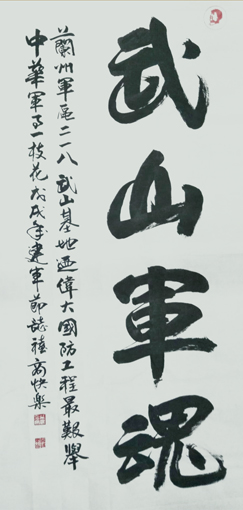 武山軍魂
蘭州軍區二一八武山基地迺偉大國防工程最艱舉
中華軍事一枝花戊戌年建軍節誌禧高快樂